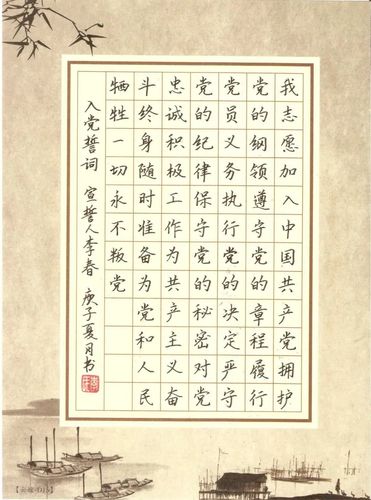 我志愿加入中国共产党拥护
党的纲领遵守党的章程履行
党员义务执行党的决定严守
党的纪律保守党的秘密对党
忠诚积极工作为共产主义奋
斗终身随时准备为党和人民
牺牲一切永不叛党
入党誓词 宣誓人李春 庚子夏月书